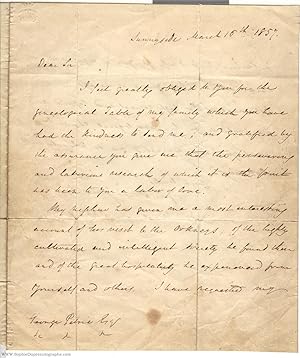 Sunnyside March 15th 1857.
Dear Sir
I feel greatly obliged to you for the
genealogical Table of my family which you have
had the kindness to send me; and gratified by
the assurance you give me that the persevering
and laborious research of which it is the fruit
has been to you a labor of love.
My nephew has given me a most interesting
account of his visit to the Orkneys, of the highly
cultivated and intelligent society he found there
and of the great hospitality he experienced from
yourself and others. I have requested my
George Petrie Esq